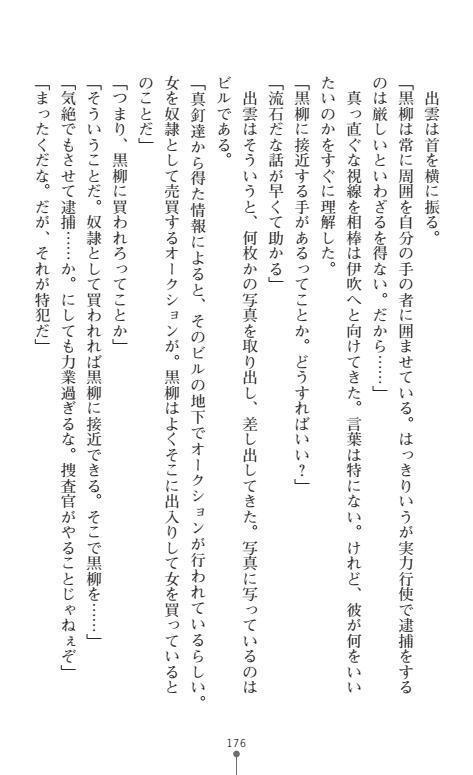 出雲は首を横に振る。
「黒柳は常に周囲を自分の手の者に囲ませている。はっきりいうが実力行使で逮捕をする
のは厳しいといわざるを得ない。だから……」
　真っ直ぐな視線を相棒は伊吹へと向けてきた。言葉は特にない。けれど、彼が何をいい
たいのかをすぐに理解した。
「黒柳に接近する手があるってことか。どうすればいい？」
「流石だな話が早くて助かる」
　出雲はそういうと、何枚かの写真を取り出し、差し出してきた。写真に写っているのは
ビルである。
「真釘達から得た情報によると、そのビルの地下でオークションが行われているらしい。
女を奴隷として売買するオークションが。黒柳はよくそこに出入りして女を買っていると
のことだ」
「つまり、黒柳に買われろってことか」
「そういうことだ。奴隷として買われれば黒柳に接近できる。そこで黒柳を……」
「気絶でもさせて逮捕……か。にしても力業過ぎるな。捜査官がやることじゃねぇぞ」
「まったくだな。だが、それが特犯だ」
176